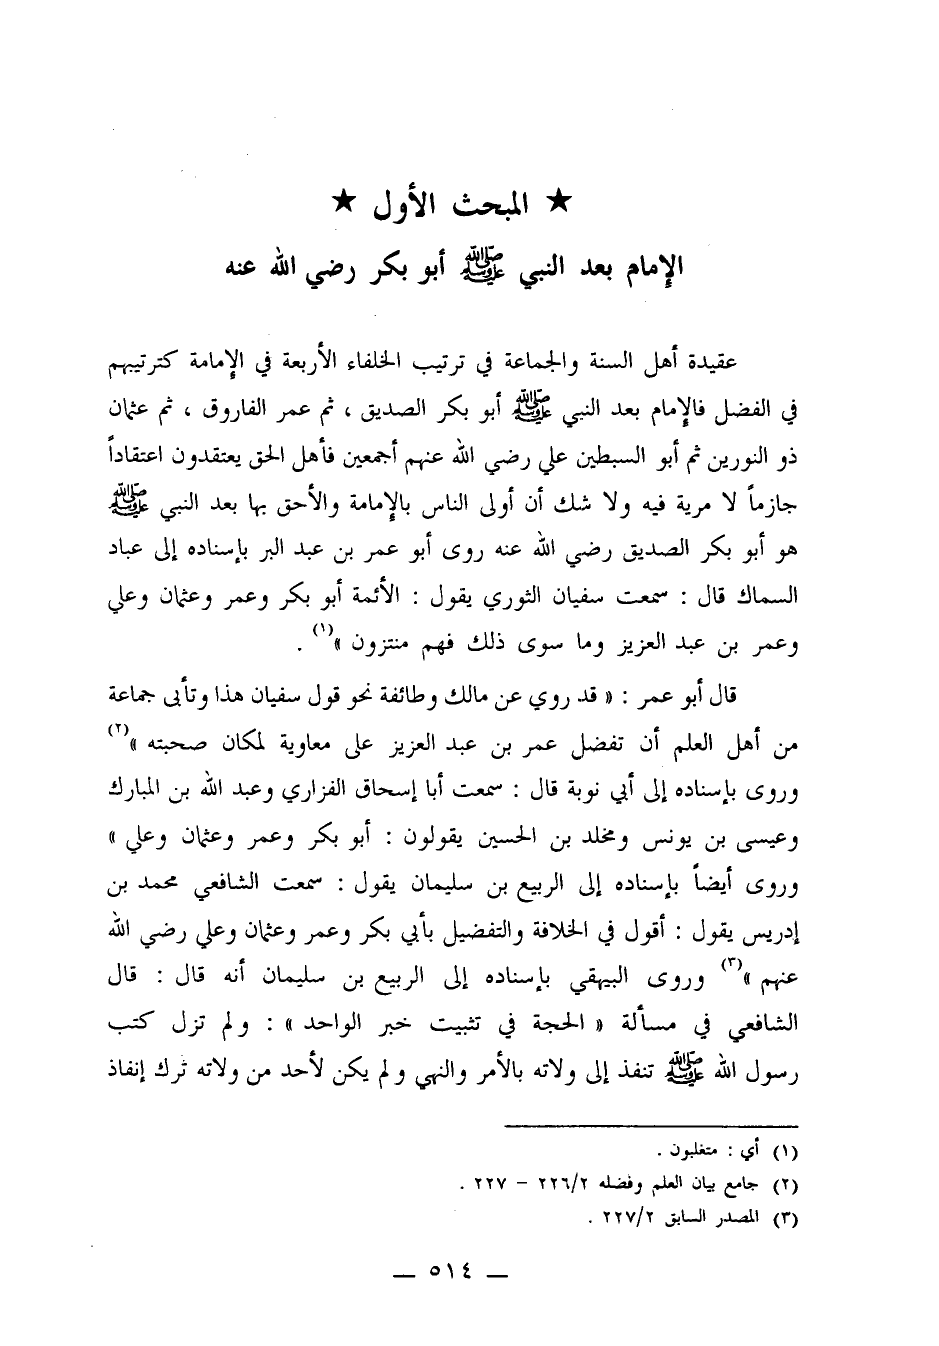 ★ المبحث الأول ★
الإمام بعد النبي ﷺ أبو بكر رضي الله عنه
عقيدة أهل السنة والجماعة في ترتيب الخلفاء الأربعة في الإمامة كترتيبهم
في الفضل فالإمام بعد النبي ﷺ أبو بكر الصديق ، ثم عمر الفاروق ، ثم عثمان
ذو النورين ثم أبو السبطين علي رضي الله عنهم أجمعين فأهل الحق يعتقدون اعتقاداً
جازماً لا مرية فيه ولا شك أن أولى الناس بالإمامة والأحق بها بعد النبي ﷺ
هو أبو بكر الصديق رضي الله عنه روى أبو عمر بن عبد البر بإسناده إلى عباد
السماك قال : سمعت سفيان الثوري يقول : الأئمة أبو بكر وعمر وعثمان وعلي
وعمر بن عبد العزيز وما سوى ذلك فهم منتزون »(١) .
قال أبو عمر : « قد روي عن مالك وطائفة نحو قول سفيان هذا وتأبى جماعة
من أهل العلم أن تفضل عمر بن عبد العزيز على معاوية لمكان صحبته »(٢)
وروى بإسناده إلى أبي نوبة قال : سمعت أبا إسحاق الفزاري وعبد الله بن المبارك
وعيسى بن يونس ومخلد بن الحسين يقولون : أبو بكر وعمر وعثمان وعلي »
وروى أيضاً بإسناده إلى الربيع بن سليمان يقول : سمعت الشافعي محمد بن
إدريس يقول : أقول في الخلافة والتفضيل بأبي بكر وعمر وعثمان وعلي رضي الله
عنهم »(٣) وروى البيهقي بإسناده إلى الربيع بن سليمان أنه قال : قال
الشافعي في مسألة « الحجة في تثبيت خبر الواحد » : ولم تزل كتب
رسول الله ﷺ تنفذ إلى ولاته بالأمر والنهي ولم يكن لأحد من ولاته ترك إنفاذ
(١) أي : متغلبون .
(٢) جامع بيان العلم وفضله ٢٢٦/٢ – ٢٢٧ .
(٣) المصدر السابق ٢٢٧/٢ .
— ٥١٤ —